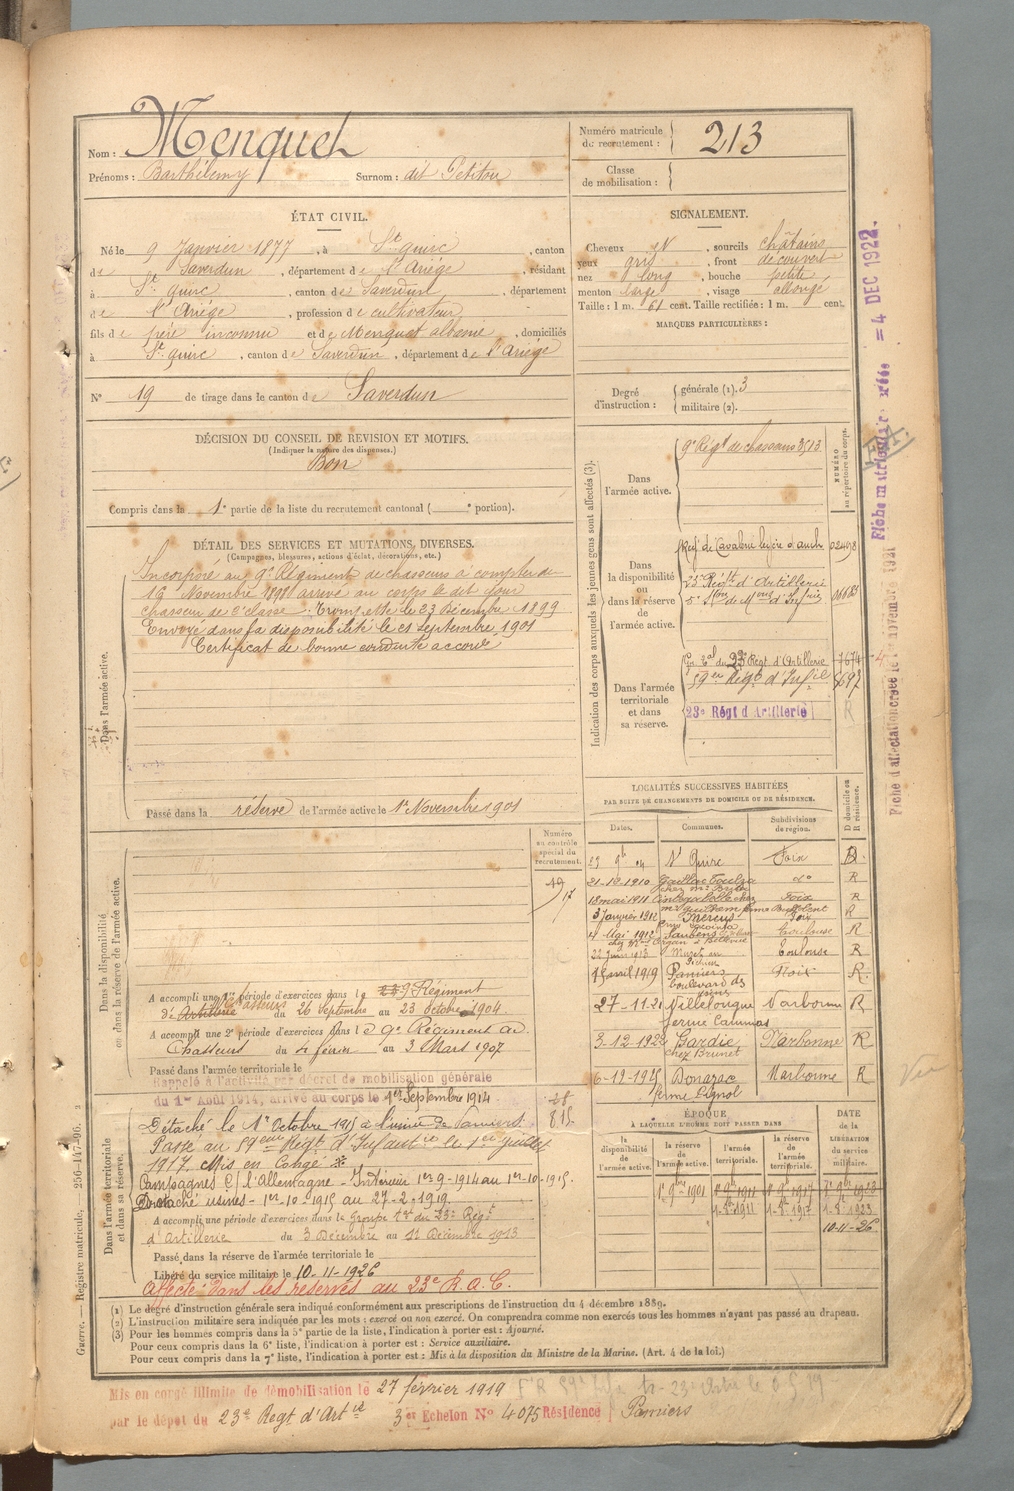 Nom : Menquet
Prénoms : Barthélemy Surnom : dit Petitou
Numéro matricule du recrutement : 213
Classe de mobilisation :
ÉTAT CIVIL.
Né le 9 Janvier 1877, à St Quirc, canton
de Saverdun, département de l'Ariège, résidant
à St Quirc, canton de Saverdun, département
de l'Ariège, profession de cultivateur
fils de père inconnu et de Menquet albanie, domiciliés
à St Quirc, canton de Saverdun, département de l'Ariège
N° 19 de tirage dans le canton de Saverdun
SIGNALEMENT.
Cheveux N, sourcils châtains
yeux gris, front découvert
nez long, bouche petite
menton large, visage allongé
Taille : 1 m. 61 cent. Taille rectifiée : 1 m. cent.
MARQUES PARTICULIÈRES :
Degré d'instruction : générale (1). 3
militaire (2).
DÉCISION DU CONSEIL DE REVISION ET MOTIFS.
(Indiquer la nature des dispenses.)
Bon
Compris dans la 1e partie de la liste du recrutement cantonal ( e portion).
DÉTAIL DES SERVICES ET MUTATIONS DIVERSES.
(Campagnes, blessures, actions d'éclat, décorations, etc.)
Dans l'armée active.
Incorporé au 9e Régiment de chasseurs à compter du
16 Novembre 1898 arrivé au corps le dit jour
chasseur de 2e classe. Trompette le 23 Décembre 1899
Envoyé dans la disponibilité le 21 Septembre 1901
Certificat de bonne conduite accordé
Passé dans la réserve de l'armée active le 1er Novembre 1901
Indication des corps auxquels les jeunes gens sont affectés (3).
NUMÉRO au répertoire du corps.
Dans l'armée active.
9e Régt de chasseurs 3513
Dans la disponibilité ou dans la réserve de l'armée active.
Régt de Cavalerie légère d'auch 02498
23e Régt d'Artillerie
Dans l'armée territoriale et dans sa réserve.
du 23e Régt d'Artillerie 7674
59eme Régt d'Infie 8697
23e Régt d'Artillerie R
LOCALITÉS SUCCESSIVES HABITÉES
PAR SUITE DE CHANGEMENTS DE DOMICILE OU DE RÉSIDENCE.
Dates. Communes. Subdivisions de région. D domicile ou R résidence.
St Quirc Foix D.
21-12-1910 Gaillac Toulza do R
18 mai 1911 Foix R
3 Janvier 1912 Mercus Foix R
4 Mai 1912 Saubens Toulouse R
22 Juin 1913 Toulouse R
avril 1919 Pamiers boulevard des Foix R.
27-11-21 Villelongue ferme Cammas Narbonne R
3-12-1922 Gardie chez Brunet Narbonne R
6-12-1925 Donazac ferme Pignol Narbonne R
Dans la disponibilité ou dans la réserve de l'armée active.
Numéro au contrôle spécial du recrutement.
19
17
A accompli une 1re période d'exercices dans le 23 9e Régiment
d'Artillerie Chasseurs du 26 Septembre au 23 Octobre 1904.
A accompli une 2e période d'exercices dans le 9e Régiment de
Chasseurs du 4 février au 3 Mars 1907
Passé dans l'armée territoriale le
Rappelé à l'activité par décret de mobilisation générale
du 1er Août 1914, arrivé au corps le 1er Septembre 1914.
Dans l'armée territoriale et dans sa réserve.
28
815
Détaché le 1er Octobre 1915 à l'usine de Pamiers.
Passé au 59eme Régt d'Infanterie le 1er juillet
1917. Mis en Congé
Campagnes C/ l'Allemagne - Intérieur 1er-9-1914 au 1er-10-1915.
Détaché usines - 1er-10-1915 au 27-2-1919
A accompli une période d'exercices dans le Groupe tal du 23e Régt
d'Artillerie du 3 Décembre au 11 Décembre 1913
Passé dans la réserve de l'armée territoriale le
Libéré du service militaire le 10-11-1926
Affecté dans les réserves au 23e R.A.C.
ÉPOQUE
À LAQUELLE L'HOMME DOIT PASSER DANS
la disponibilité de l'armée active. la réserve de l'armée active. l'armée territoriale. la réserve de l'armée territoriale.
DATE de la LIBÉRATION du service militaire.
1er 9bre 1901 1er 9bre 1911 1er 9bre 1917 1er 9bre 1923
1-8bre 1911 1-8bre 1917 1-8 1923
10-11-26
(1) Le degré d'instruction générale sera indiqué conformément aux prescriptions de l'instruction du 4 décembre 1889.
(2) L'instruction militaire sera indiquée par les mots : exercé ou non exercé. On comprendra comme non exercés tous les hommes n'ayant pas passé au drapeau.
(3) Pour les hommes compris dans la 5e partie de la liste, l'indication à porter est : Ajourné.
Pour ceux compris dans la 6e liste, l'indication à porter est : Service auxiliaire.
Pour ceux compris dans la 7e liste, l'indication à porter est : Mis à la disposition du Ministre de la Marine. (Art. 4 de la loi.)
Mis en congé illimité de démobilisation le 27 février 1919
par le dépôt du 23e Regt d'Artie 3e Echelon N° 4075 Résidence Pamiers
Guerre. — Registre matricule. 256-147-96.
Fiche matriculaire créée = 4 DEC 1922.
Fiche d'affectation créée le novembre 1921
Vu